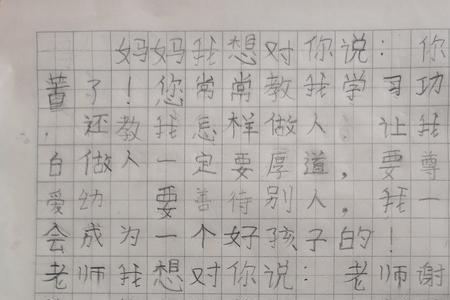 妈妈我想对你说：你
董了！您常常教我学习功
，还教我怎样做人、让我
白做人一定要厚道，要尊
爱幼 要善待别人，我一
会成为一个好孩子的！
老师我想对你说：老师谢